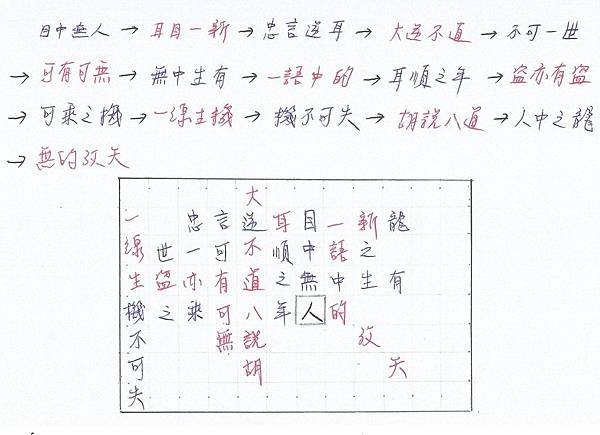 目中無人 → 耳目一新 → 忠言逆耳 → 大逆不道 → 不可一世
→ 可有可無 → 無中生有 → 一語中的 → 耳順之年 → 盜亦有盜
→ 可乘之機 → 一線生機 → 機不可失 → 胡說八道 → 人中之龍
→ 無的放矢
大
一 忠言逆耳目一新龍
線世一可不順中語之
生盜亦有道之無中生有
機之乘可八年人的
不 無說 放
可 胡 矢
失